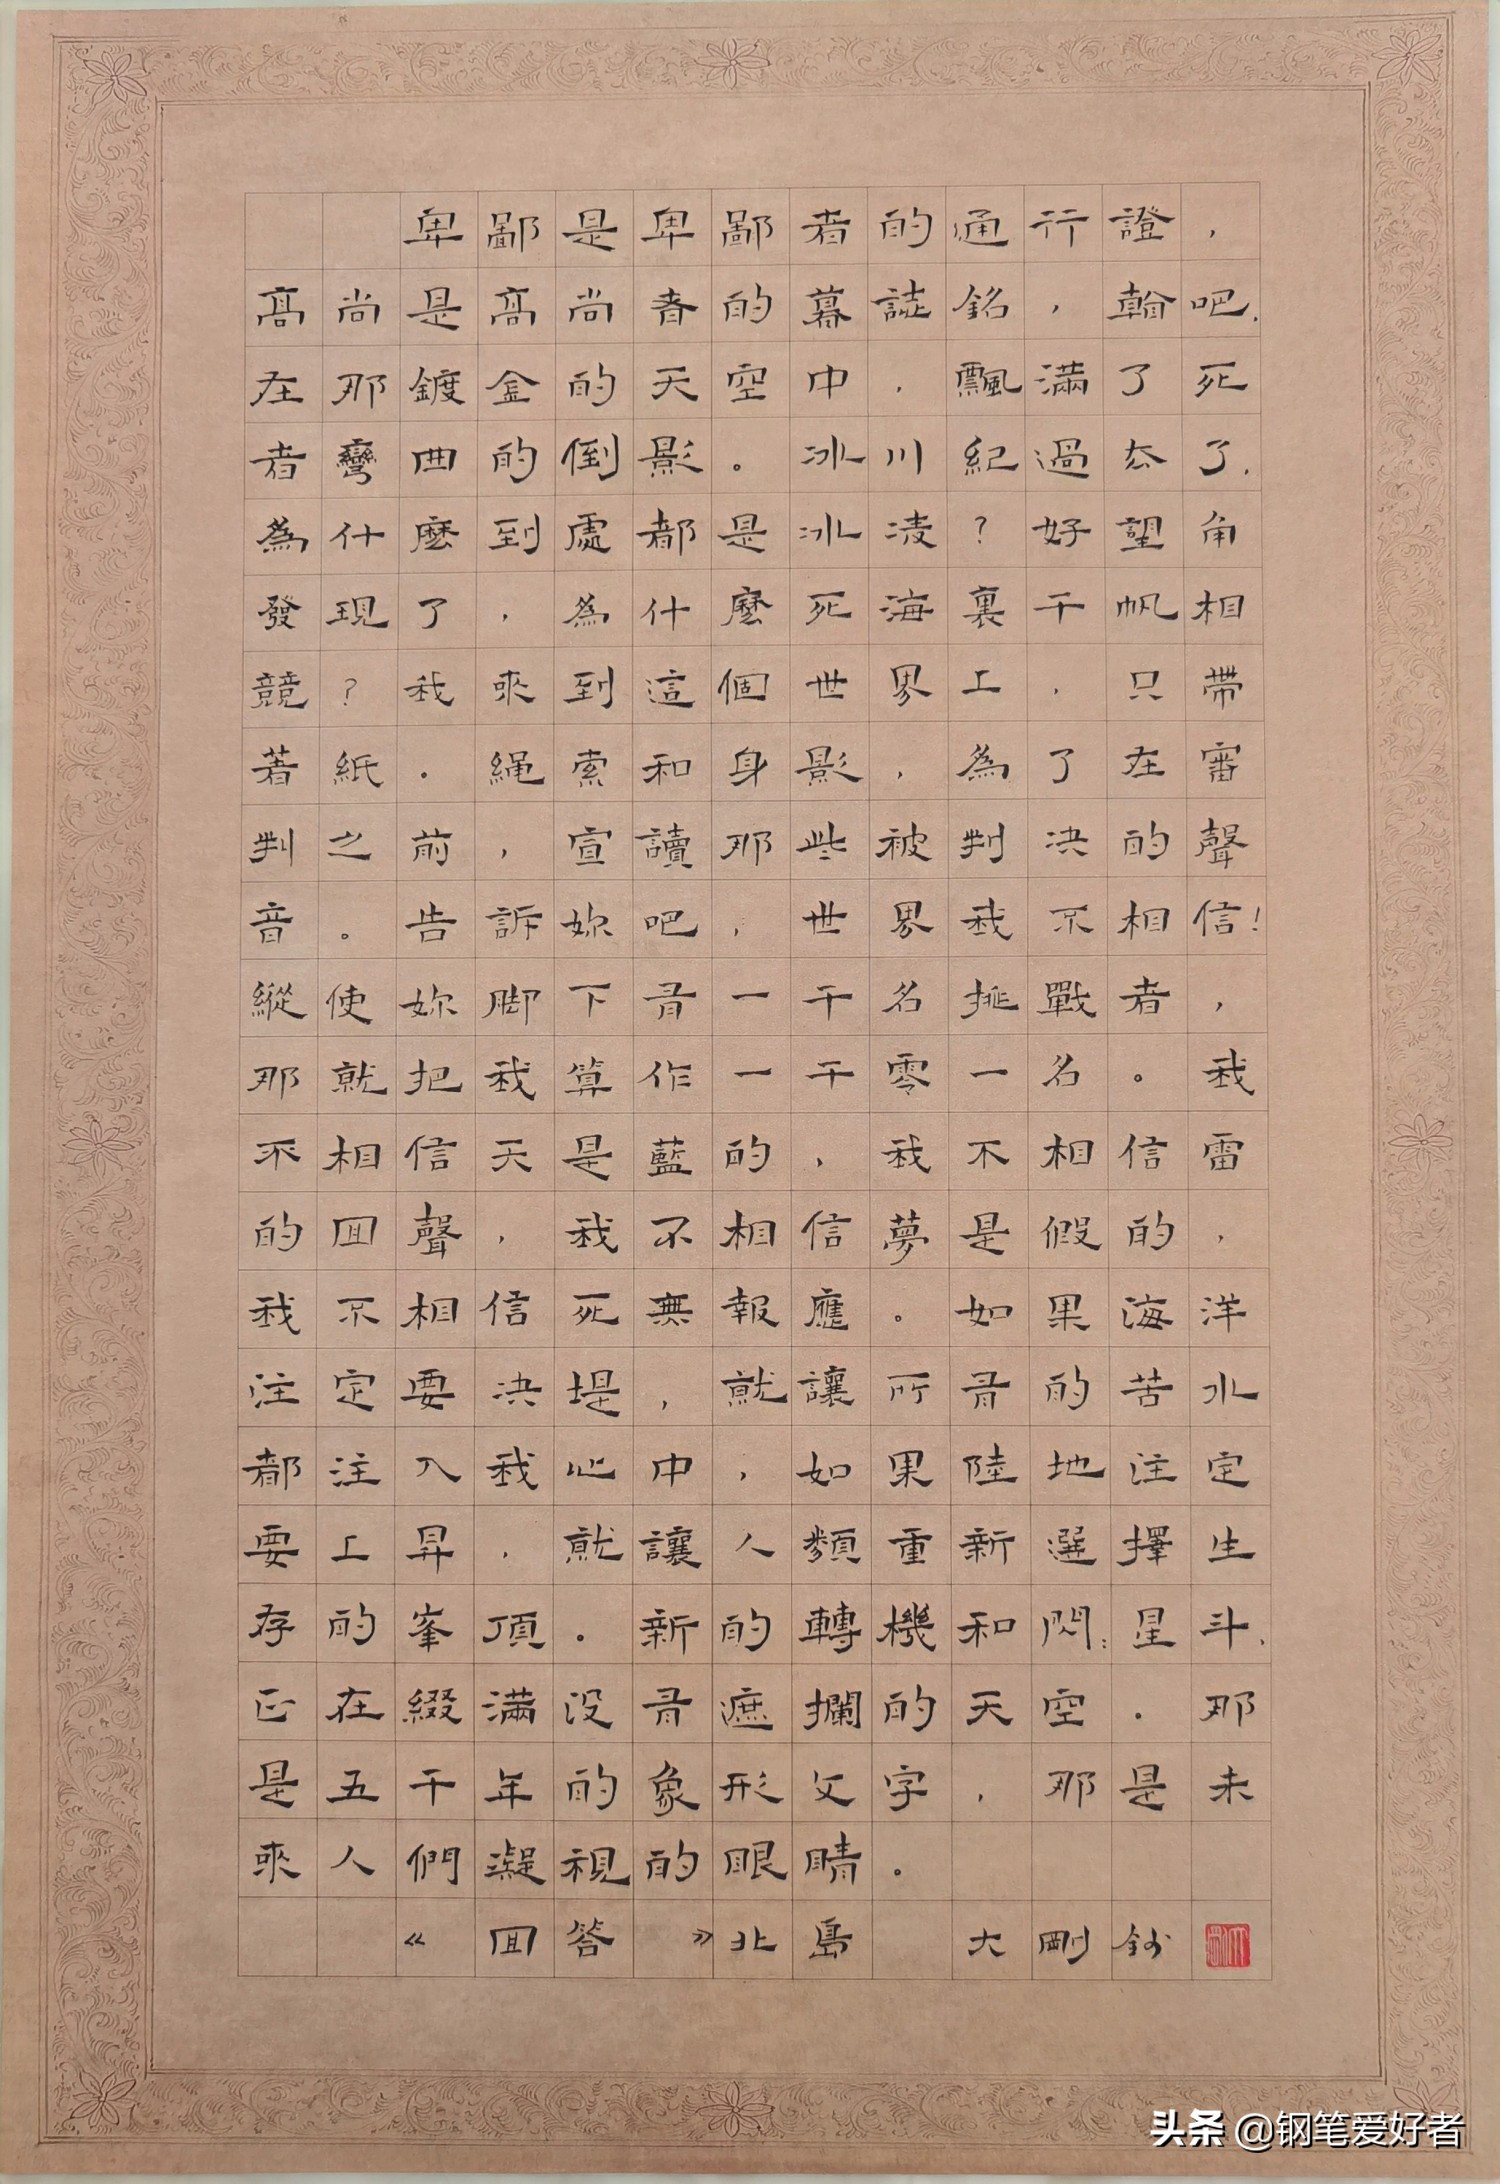 卑鄙是卑鄙者的通行證，
高尚是高尚者的墓誌銘，翰吧，
在那鍍金的天空中，飄滿了死
者彎曲的倒影。冰川紀過去了，
為什麼到處都是冰凌？好望角
發現了，為什麼死海裏千帆相
競？我來到這個世界上，只帶
著紙．繩索和身影，為了在審
判之前，宣讀那些被判决的聲
音。告訴妳吧，世界我不相信！
縱使妳脚下有一千名挑戰者，
那就把我算作一千零一名。我
不相信天是藍的，我不相信雷
的回聲，我不相信夢是假的，
我不相信死無報應。如果海洋
注定要决堤，就讓所有的苦水
都注入我心中，如果陸地注定
要上昇，就讓人類重新選擇生
存的峯頂．新的轉機和閃：星斗，
正在綴滿没有遮攔的天空．那
是五千年的象形文字，那是未
來人們凝視的眼睛。
《回答》北島 大剛鈔
头条 @钢笔爱好者